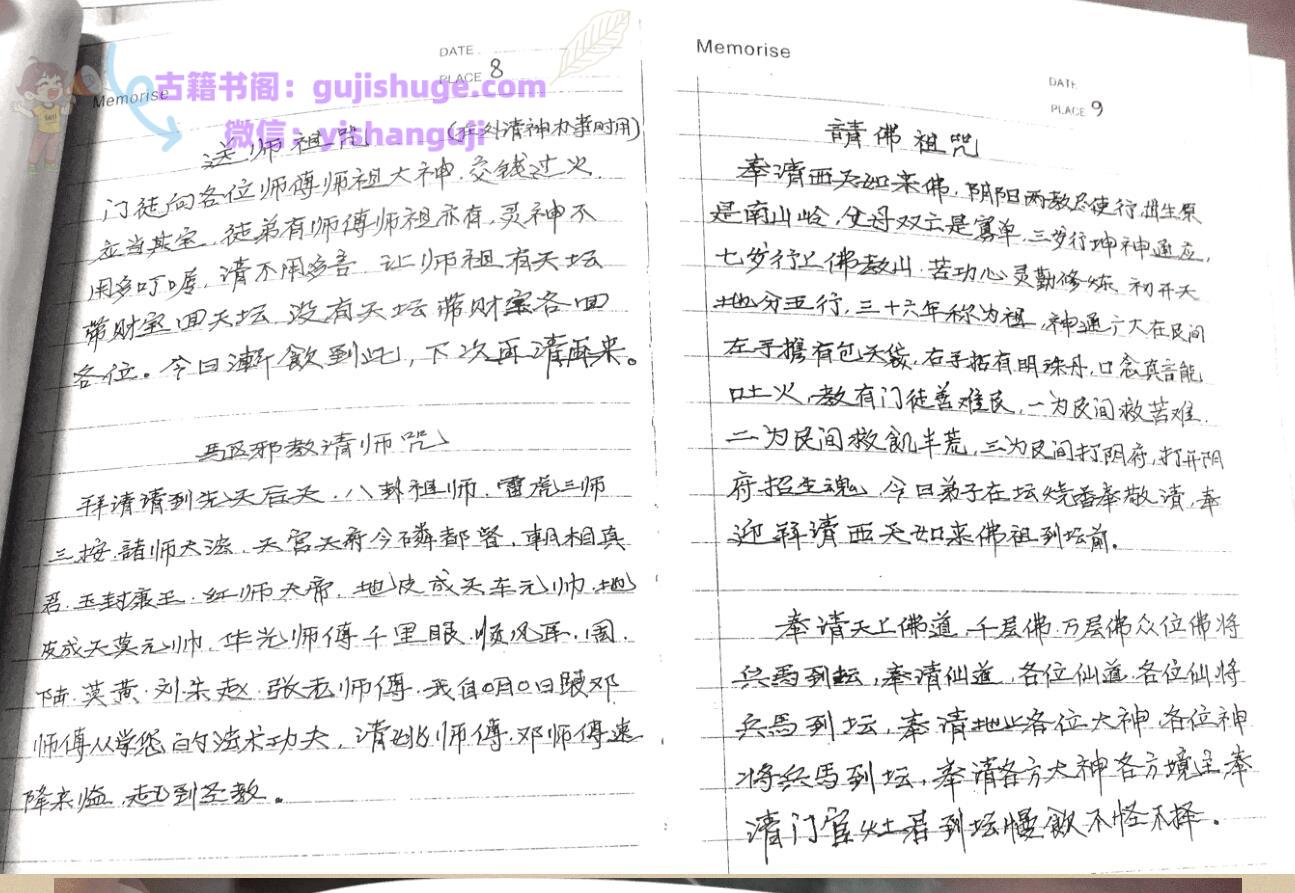 DATE
PLACE 8
Memorise
古籍书阁：gujishuge.com
微信：yishanguji
送师祖咒 (在外请神办事时用)
门徒向各位师傅师祖大神，交钱过火，
应当其宝，徒弟有师傅师祖亦有，灵神不
用多叮咛，请不用多言，让师祖有天坛
带财宝回天坛，没有天坛带财宝各回
各位。今日渐飲到此，下次再请再来。
邪教请师咒
拜请请到先天后天，八卦祖师，雷虎三师
三按，諸师大法，天宫天府今磷都督，朝相真
君，玉封康王，红师大帝，地皮成天车元帅，地
皮成天莫元帅，华光师傅千里眼，顺风耳，周，
陆，莫黄，刘朱赵，张老师傅，我自0月0日跟邓
师傅从学您的法术功夫，请师傅，邓师傅速
降来临，赶到圣教。
Memorise
DATE
PLACE 9
請佛祖咒
奉请西天如来佛，阴阳两教尽使行，出生原
是南山岭，父母双亡是寡单，三岁行坤神通应，
七岁行上佛教山，苦功心灵勤修炼，初开天
地分五行，三十六年称为祖，神通广大在民间
左手携有包天袋，右手拈有明珠丹，口念真言能
吐火，教有门徒善难民，一为民间救苦难，
二为民间救飢半荒，三为民间打阴府，打开阴
府招生魂，今日弟子在坛烧香奉敬请，奉
迎拜请西天如来佛祖到坛前。
奉请天上佛道，千层佛，万层佛众位佛将
兵馬到坛，奉请仙道，各位仙道，各位仙将
兵馬到坛，奉请地上各位大神，各位神
将兵馬到坛，奉请各方大神各方境主，奉
请门官灶君到坛慢飲不怪不择。